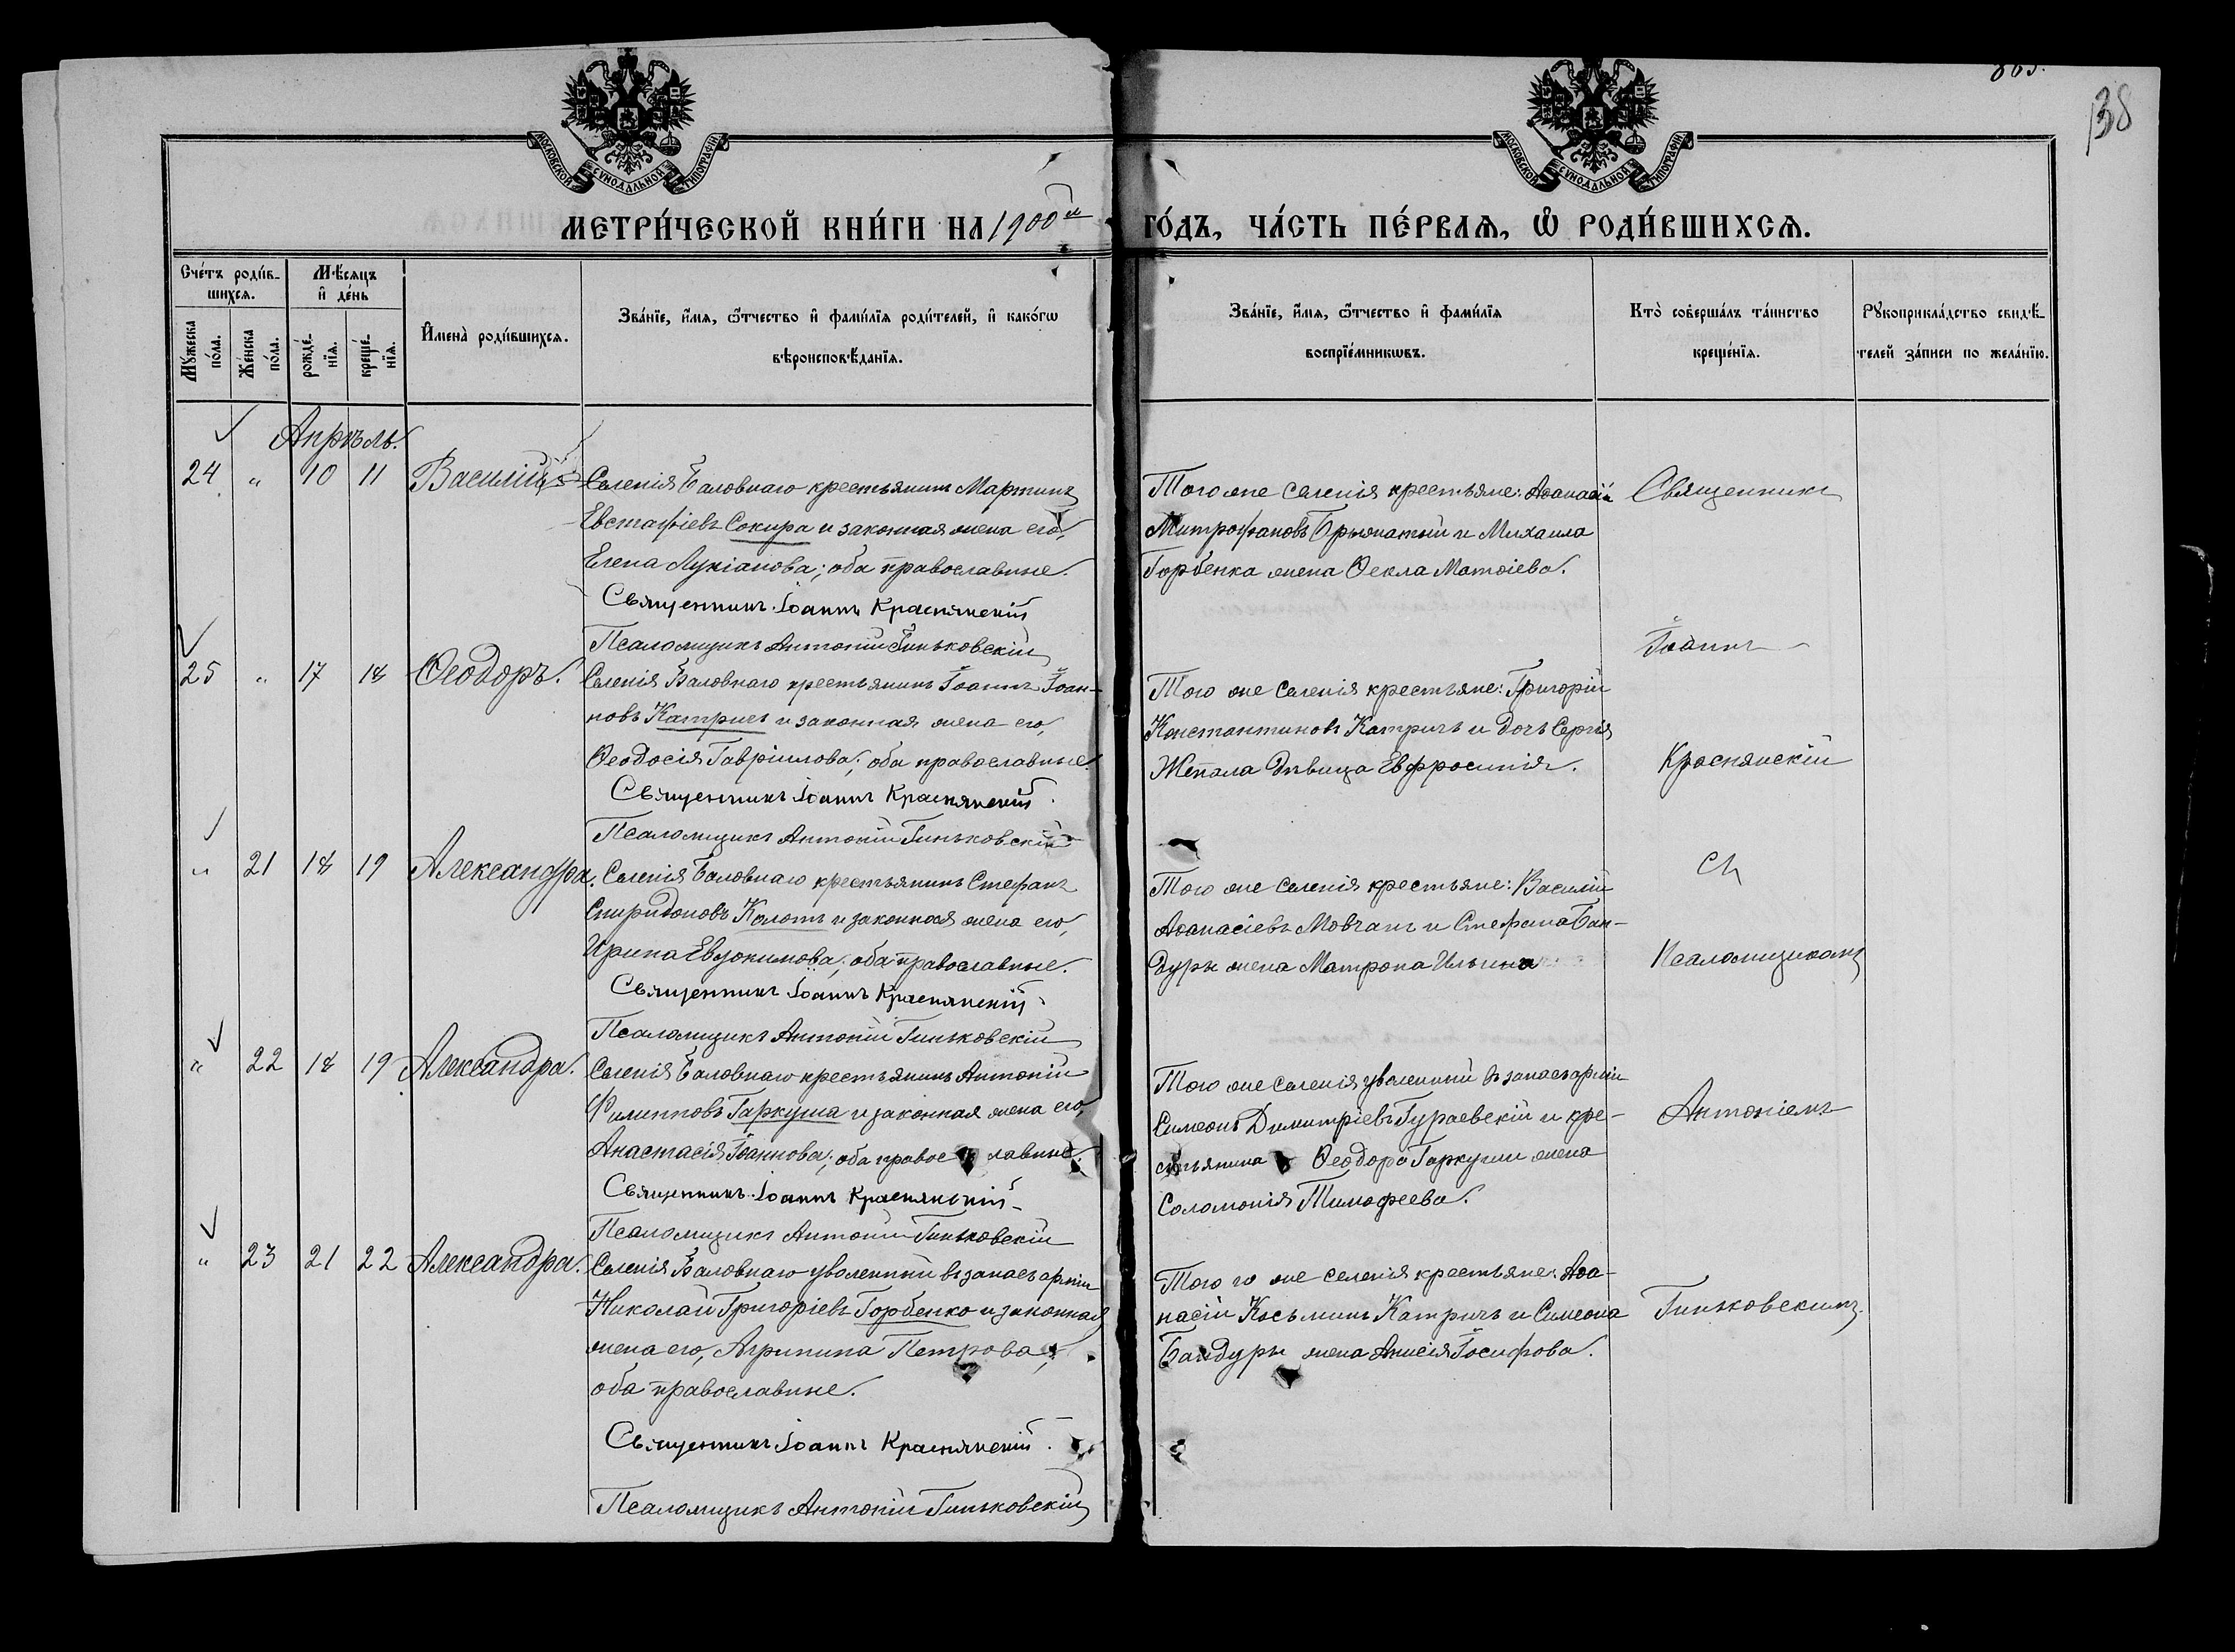 865.
138
МОСКОВСКОЙ СѴНОДАЛЬНОЙ ТИПОГРАФІИ
МОСКОВСКОЙ СѴНОДАЛЬНОЙ ТИПОГРАФІИ
МЕТРИ́ЧЕСКОЙ КНИ́ГИ НА 1900й ГО́ДЪ, ЧА́СТЬ ПЕ́РВАЯ, Ѡ РОДИ́ВШИХСЯ.
Сче́тъ роди́в-
шихся.
Мꙋ́жеска по́ла.
Же́нска по́ла.
Мѣ́сяцъ и де́нь
рожде́-нїя.
креще́-нїя.
Имена̀ роди́вшихся.
Зва́нїе, и́мя, ѻ́тчество и фами́лїя роди́телей, и како́гѡ
вѣроисповѣ́данїя.
Зва́нїе, и́мя, ѻ́тчество и фами́лїя
воспрїе́мникѡвъ.
Кто̀ соверша́лъ та́инство
креще́нїя.
Рꙋкоприкла́дство свидѣ́-
телей за́писи по жела́нїю.
Апрѣль.
24 " 10 11 Василій
Селенія Баловнаго крестьянинъ Мартинъ
Евстафіевъ Сокира и законная жена его,
Елена Лукіанова; оба православные.
Священникъ Іоаннъ Краснянскій
Псаломщикъ Антоній Гиньковскій
Того же селенія крестьяне: Аѳанасій
Митрофановъ Брюхатый и Михаила
Горбенка жена Ѳекла Матѳіева.
25 " 17 18 Ѳеодоръ.
Селенія Баловнаго крестьянинъ Іоаннъ Іоан-
новъ Катричъ и законная жена его,
Ѳеодосія Гавріилова; оба православные.
Священникъ Іоаннъ Краснянскій.
Псаломщикъ Антоній Гиньковскій
Того же селенія крестьяне: Григорій
Константиновъ Катричъ и дочь Сергія
девица Евфросинія.
" 21 18 19 Александра.
Селенія Баловнаго крестьянинъ Стефанъ
Спиридоновъ и законная жена его,
Ирина Евдокимова; оба православные.
Священникъ Іоаннъ Краснянскій.
Псаломщикъ Антоній Гиньковскій
Того же селенія крестьяне: Василій
Аѳанасіевъ Мовчанъ и Стефана Бан-
дуры жена Матрона Ильина
" 22 18 19 Александра.
Селенія Баловнаго крестьянинъ Антоній
Филипповъ Гаркуша и законная жена его,
Анастасія Іоаннова; оба православные.
Священникъ Іоаннъ Краснянскій
Псаломщикъ Антоній Гиньковскій
Того же селенія уволенный въ запасъ арміи
Симеонъ Димитріевъ Гураевскій и кре-
стьянина Ѳеодора Гаркуши жена
Соломонія Тимофеева.
" 23 21 22 Александра.
Селенія Баловнаго уволенный въ запасъ арміи
Николай Григоріевъ Горбенко и законная
жена его, Агрипина Петрова;
оба православные.
Священникъ Іоаннъ Краснянскій.
Псаломщикъ Антоній Гиньковскій
Того го же селенія крестьяне: Аѳа-
насій Косьминъ Катричъ и Симеона
Бандуры жена Анисія Іосифова.
Священникъ
Іоаннъ
Краснянскій
съ
Псаломщикомъ
Антоніемъ
Гиньковскимъ.